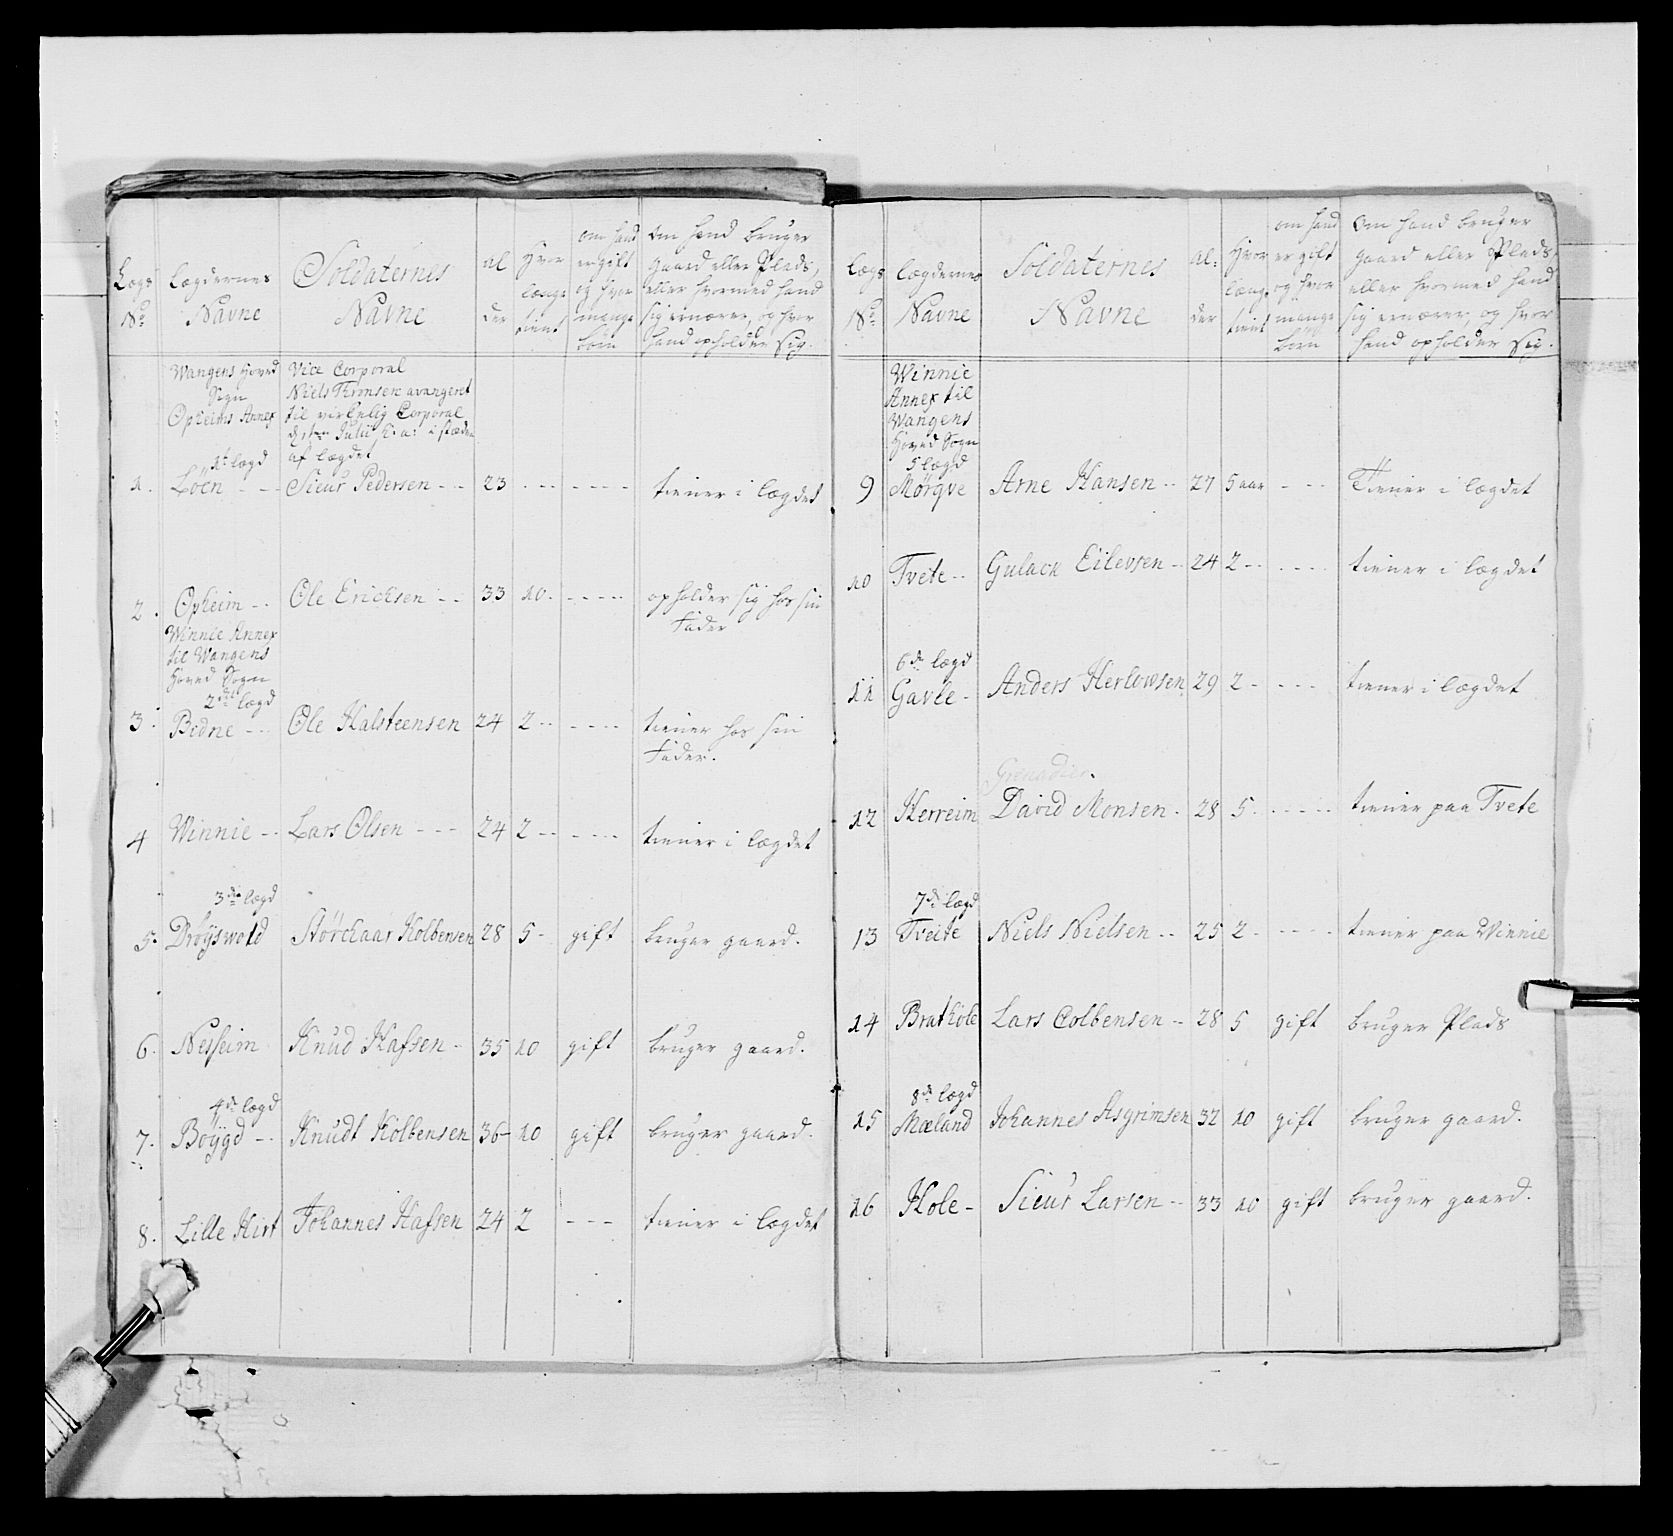 Lægs No | Lægdernes Navne | Soldaternes Navne | al der | Hvor længe tient | om hand er gift og hvor mange børn | Om hand bruger gaard eller Plads, eller hvormed hand sig ernærer, og hvor hand opholder sig.
Wangens Hoved Sogn Opheims Annex | Vice Corporal Niels Thronsen avangeret til virkelig Corporal af lægdet
1t lægd
1. | Löen - - - | Sieur Pedersen - - | 23 | - - - | - - - - - | tiener i lægdet
2. | Opheim - - | Ole Ericksen - - | 33 | 10. | - - - - - | opholder sig hos sin Fader
Winnie Annex til Wangens Hoved Sogn
2de lægd
3. | Bidne - - - | Ole Halsteensen | 24 | 2 - - | - - - - - | tiener hos sin Fader.
4 | Winnie - - | Lars Olsen - - - | 24 | 2 - - | - - - - - | tiener i lægdet
3die lægd
5. | Dröÿswold | Störchaar Kolbensen | 28 | 5 - | gift | bruger gaard.
6. | Nesheim | Knud Hafsen - | 35 | 10 | gift | bruger gaard.
4de lægd
7. | Boÿgd - - | Knudt Kolbensen | 36 - | 10 | gift | bruger gaard.
8. | Lille Hirt | Johannes Hafsen | 24 | 2 | - - - | tiener i lægdet
Lægs No | Lægdernes Navne | Soldaternes Navne | Al: der | Hvor længe tient | om hand er gift og hvor mange børn | Om hand bruger gaard eller Plads, eller hvormed hand sig ernærer, og hvor hand opholder sig.
Winnie Annex til Wangens Hoved Sogn
5 lægd
9 | Mørqve | Arne Hansen - - | 27 | 5 aar | - - - | Tiener i lægdet
10 | Tvete - - | Gulack Eilevsen - - | 24 | 2 - - | - - - - | tiener i lægdet
6de lægd
11 | Gavle - | Anders Herlowsen | 29 | 2 - | - - - | tiener i lægdet
Grenadier.
12 | Herreim | David Monsen - | 28 | 5 - | - - - - | tiener paa Tvete
7de lægd
13 | Tveite | Niels Nielsen - - | 25 | 2 - | - - - - | tiener paa Winnie
14 | Brathole | Lars Colbensen - - | 28 | 5 | gift | bruger Plads
8de lægd
15 | Mæland | Johannes Asgrimsen | 32 | 10 | gift | bruger gaard.
16 | Hole - | Sieur Larsen - - | 33 | 10 | gift | bruger gaard.